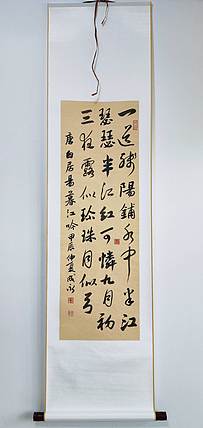 一道殘陽鋪水中半江
瑟瑟半江紅可憐九月初
三夜露似珍珠月似弓
唐白居易暮江吟甲辰仲夏